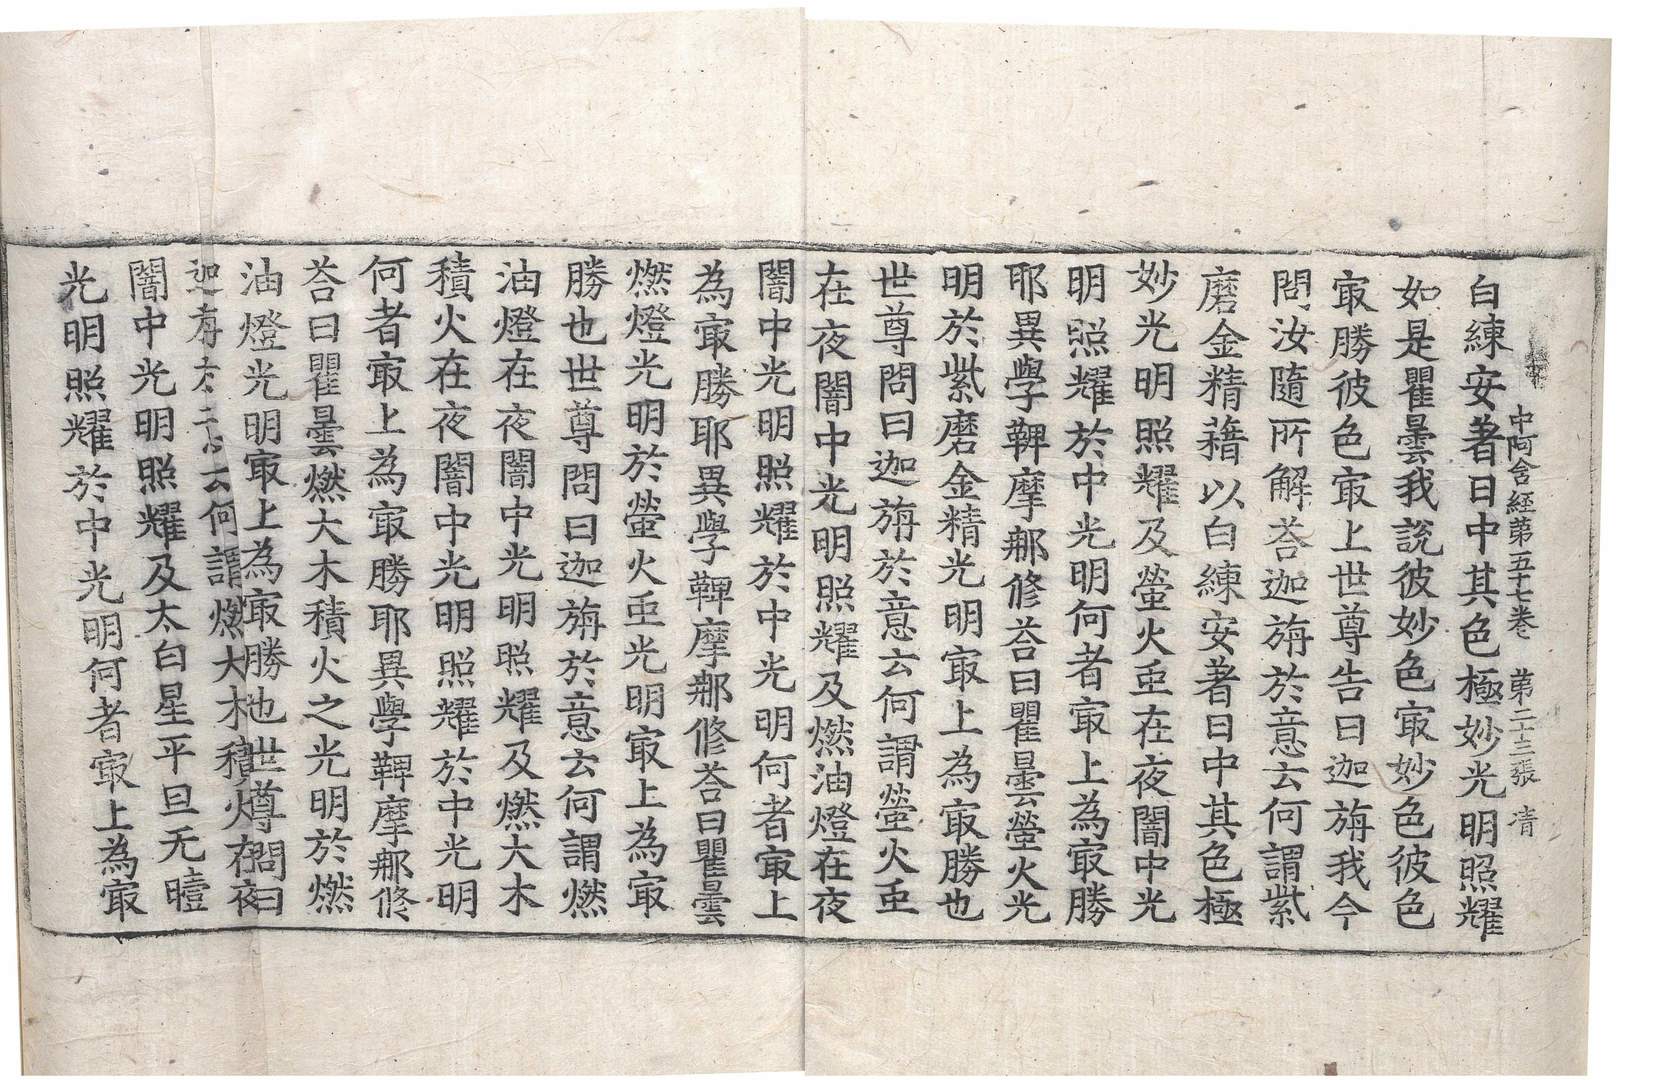 中阿含経苐五十七卷 苐二十三張 清
白練安著日中其色極妙光明照耀
如是瞿曇我說彼妙色㝡妙色彼色
㝡勝彼色㝡上世尊告曰迦旃我今
問汝隨所解荅迦旃於意云何謂紫
磨金精藉以白練安著日中其色極
妙光明照耀及螢火䖝在夜闇中光
明照耀於中光明何者㝡上為㝡勝
耶異學鞞摩那修荅曰瞿曇螢火光
明於紫磨金精光明㝡上為㝡勝也
世尊問曰迦旃於意云何謂螢火䖝
在夜闇中光明照耀及燃油燈在夜
闇中光明照耀於中光明何者㝡上
為㝡勝耶異學鞞摩那修荅曰瞿曇
燃燈光明於螢火䖝光明㝡上為㝡
勝也世尊問曰迦旃於意云何謂燃
油燈在夜闇中光明照耀及燃大木
積火在夜闇中光明照耀於中光明
何者㝡上為㝡勝耶異學鞞摩那修
荅曰瞿曇燃大木積火之光明於燃
油燈光明㝡上為㝡勝也世尊問曰
迦云何謂燃大木積火在夜
闇中光明照耀及太白星平旦无曀
光明照耀於中光明何者㝡上為㝡